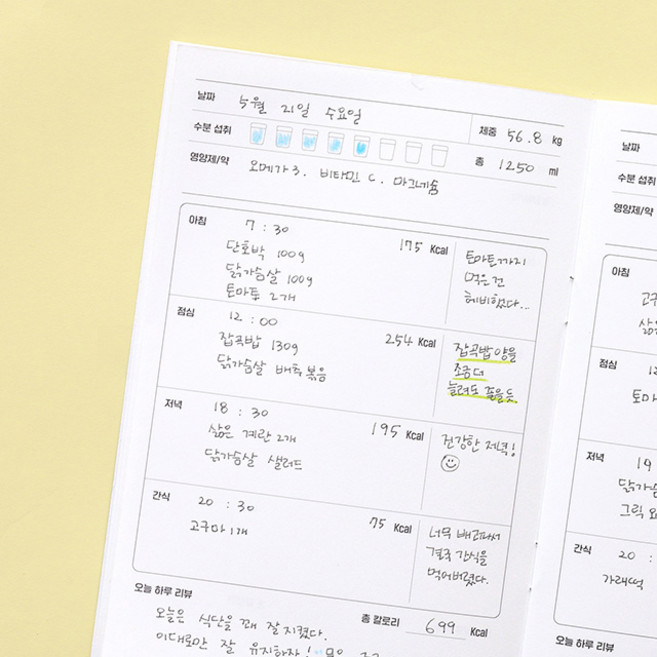 날짜 5월 21일 수요일 체중 56.8 kg
수분 섭취 총 1250 ml
영양제/약 오메가3. 비타민 C. 마그네슘
아침 7 : 30 175 Kcal
단호박 100g
닭가슴살 100g
토마토 2개
토마토까지
먹은건
헤비했다...
점심 12 : 00 254 Kcal
잡곡밥 130g
닭가슴살 배추볶음
잡곡밥 양을
조금 더
늘려도 좋을듯.
저녁 18 : 30 195 Kcal
삶은 계란 2개
닭가슴살 샐러드
건강한 저녁!
간식 20 : 30 75 Kcal
고구마 1개
너무 배고파서
결국 간식을
먹어버렸다.
오늘 하루 리뷰 총 칼로리 699 Kcal
오늘은 식단을 꽤 잘 지켰다.
이대로만 잘 유지하자!
날짜
수분 섭취
영양제/약
아침
점심
토마
저녁 19
닭가슴
그릭 요
간식 20 :
가래떡
오늘 하루 리뷰